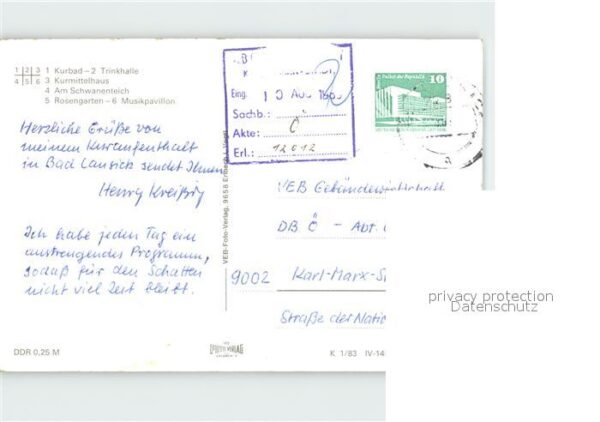 1 2 3 1 Kurbad – 2 Trinkhalle
4 5 6 3 Kurmittelhaus
4 Am Schwanenteich
5 Rosengarten – 6 Musikpavillon
Herzliche Grüße von
meinem Kuraufenthalt
in Bad Lausick sendet Ihnen
Henry Kreißig
Ich habe jeden Tag ein
anstrengendes Programm,
sodaß für den Schatten
nicht viel Zeit bleibt.
DDR 0,25 M
VEB-Foto-Verlag, 9658 Erlbach i. Vogtl.
FOTO VERLAG
Eing.
Sachb.:
Akte: Ö
Erl.: 12012
Palast der Republik 10
VEB Gebäudewirtschaft
DB Ö – Abt.
9002 Karl-Marx-S
Straße der Natio
K 1/83 IV-14
privacy protection
Datenschutz